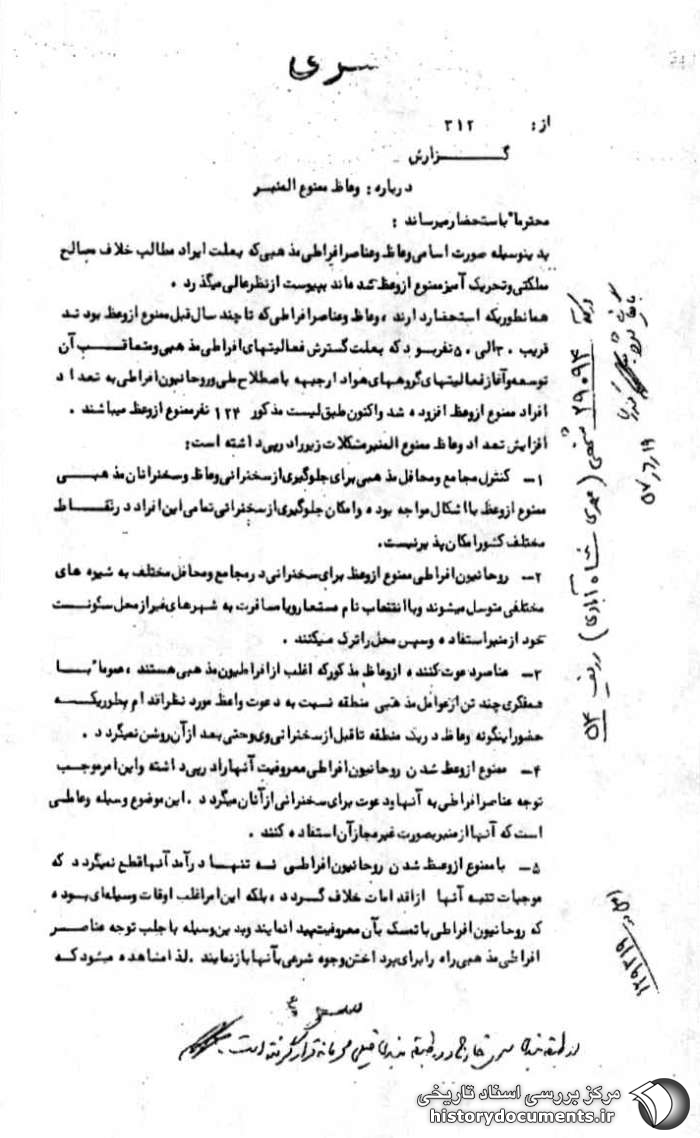 سری
از: ۳۱۲
گزارش
درباره: وعاظ ممنوع المنبر
محترما" باستحضار میرساند:
بدینوسیله صورت اسامی وعاظ و عناصر افراطی مذهبی که بعلت ایراد مطالب خلاف مصالح
مملکتی و تحریک آمیز ممنوع از وعظ شده اند بپیوست از نظر عالی میگذرد.
همانطوریکه استحضار دارند، وعاظ و عناصر افراطی که تا چند سال قبل ممنوع از وعظ بودند
قریب ۳۰ الی ۵۰ نفر بود که بعلت گسترش فعالیتهای افراطی مذهبی و متعاقب آن
توسعه و آغاز فعالیتهای گروههای هوادار جبهه باصطلاح ملی و روحانیون افراطی به تعداد
افراد ممنوع از وعظ افزوده شد و اکنون طبق لیست مذکور ۱۲۴ نفر ممنوع از وعظ میباشند.
افزایش تعداد وعاظ ممنوع المنبر مشکلات زیر را در پی داشته است:
۱- کنترل مجامع و محافل مذهبی برای جلوگیری از سخنرانی وعاظ و سخنرانان مذهبی
ممنوع از وعظ با اشکال مواجه بوده و امکان جلوگیری از سخنرانی تمامی این افراد در نقاط
مختلف کشور امکان پذیر نیست.
۲- روحانیون افراطی ممنوع از وعظ برای سخنرانی در مجامع و محافل مختلف به شیوه های
مختلفی متوسل میشوند و با انتخاب نام مستعار و یا مسافرت به شهرهای غیر از محل سکونت
خود از منبر استفاده و سپس محل را ترک میکنند.
۳- عناصر دعوت کننده از وعاظ مذکور که اغلب از افراطیون مذهبی هستند، عموما" با
همفکری چند تن از عوامل مذهبی منطقه نسبت به دعوت واعظ مورد نظر اقدام بطوریکه
حضور اینگونه وعاظ در یک منطقه تا قبل از سخنرانی وی و حتی بعد از آن روشن نمیگردد.
۴- ممنوع از وعظ شدن روحانیون افراطی معروفیت آنها را در پی داشته و این امر موجب
توجه عناصر افراطی به آنها و دعوت برای سخنرانی از آنان میگردد. این موضوع وسیله و عاملی
است که آنها از منبر بصورت غیر مجاز آن استفاده کنند.
۵- با ممنوع از وعظ شدن روحانیون افراطی نه تنها درآمد آنها قطع نمیگردد که
موجبات تنبه آنها از اقدامات خلاف گردد، بلکه این امر اغلب اوقات وسیله ای بوده
که روحانیون افراطی با تمسک بآن معروفیت پیدا نمایند و بدین وسیله با جلب توجه عناصر
افراطی مذهبی راه را برای پرداختن وجوه شرعی بآنها باز نمایند. لذا مشاهده میشود که
سری
از طبقه بندی سری خارج و در طبقه بندی خیلی محرمانه قرار گرفته است.
۲۹۰۹۴ شخصی (مهدی شاه آبادی) ردیف ۵۴
۵۷٫۶٫۱۹
مرکز بررسی اسناد تاریخی
historydocuments.ir